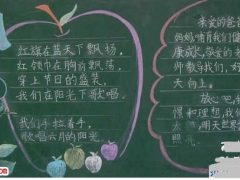 红旗在蓝天下飘扬,
红领巾在胸前飘荡,
穿上节日的盛装,
我们在阳光下歌唱
我们手拉着手,
歌唱六月的阳光
亲爱的爸
妈妈哺育我们健
康成长,敬爱的老
师教导我们,好
天向上。
放心吧,
慢和理想,我们
明天世界